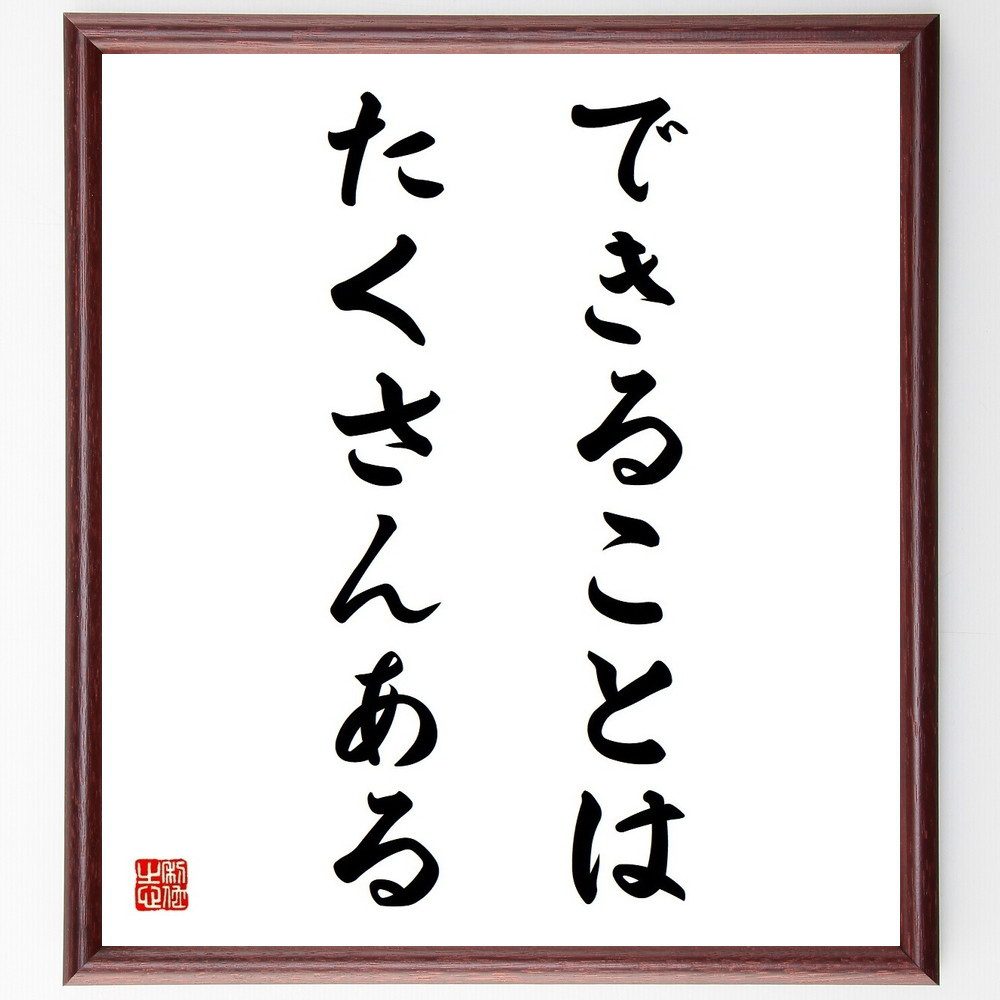 できることは
たくさんある